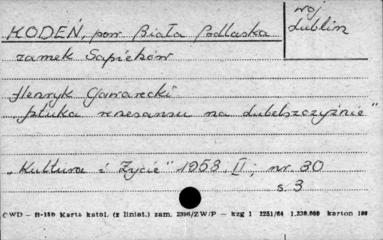 KODEŃ, pow. Biała Podlaska
woj.
Lublin
zamek Sapiehów
Henryk Gawarecki
„Sztuka renesansu na Lubelszczyźnie”
„Kultura i Życie” 1953. II; nr. 30
s. 3
CWD – B-18b Karta katal. (z liniat.) zam. 2396/Z/W/P – kzg 1 2251/64 1.330.000 karton 180